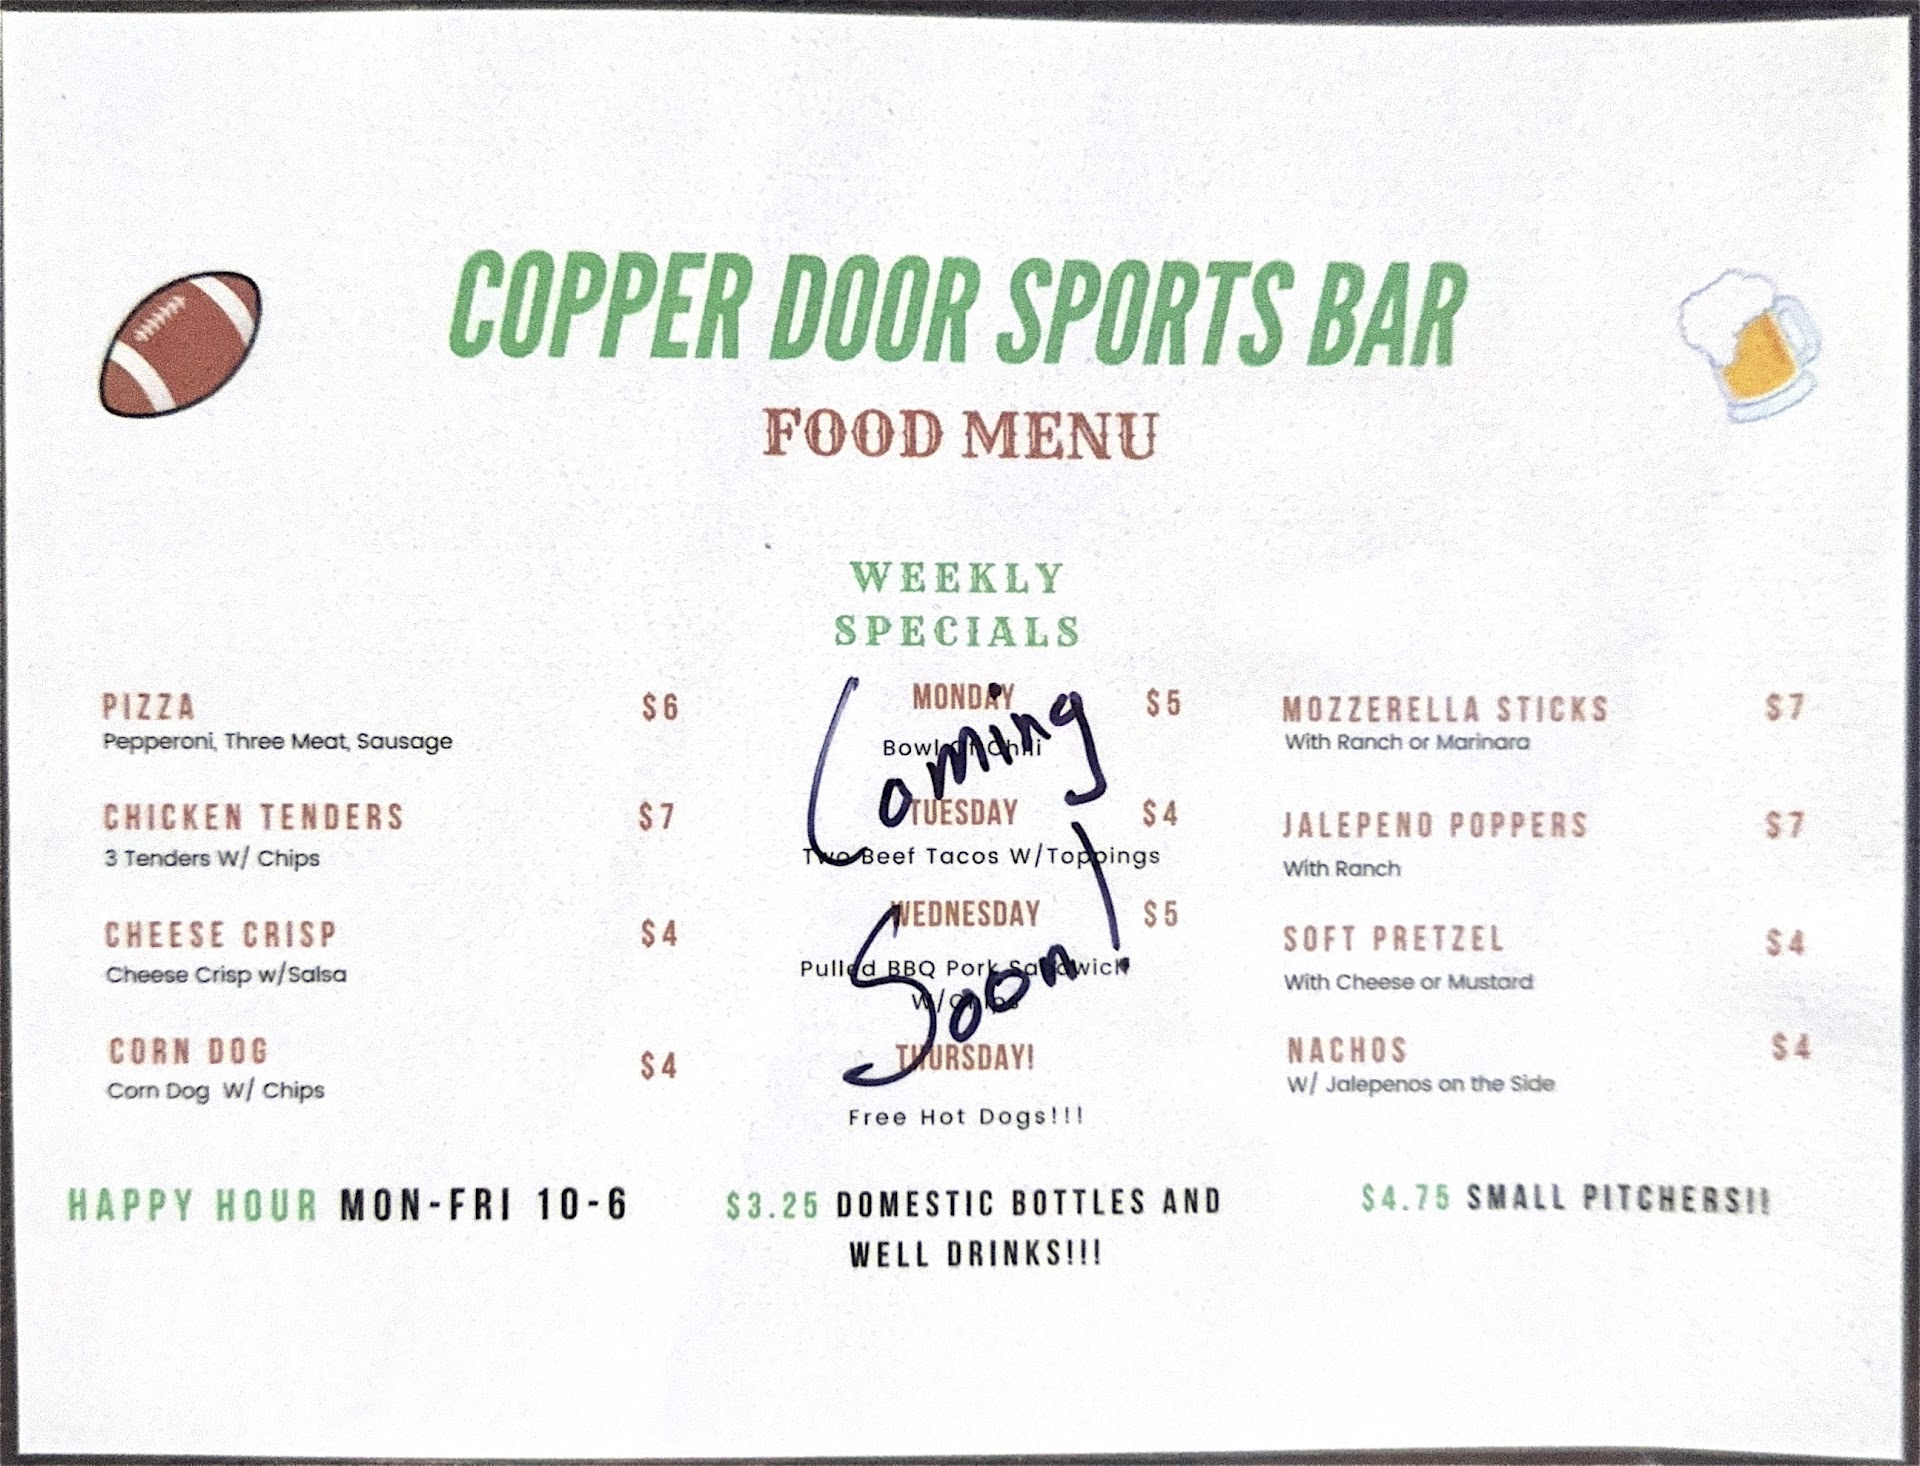 COPPER DOOR SPORTS BAR
FOOD MENU
PIZZA $6
Pepperoni, Three Meat, Sausage
CHICKEN TENDERS $7
3 Tenders W/ Chips
CHEESE CRISP $4
Cheese Crisp w/Salsa
CORN DOG $4
Corn Dog W/ Chips
WEEKLY
SPECIALS
MONDAY $5
Bowl Of Chili
TUESDAY $4
Two Beef Tacos W/Toppings
WEDNESDAY $5
Pulled BBQ Pork Sandwich
W/Chips
THURSDAY!
Free Hot Dogs!!!
Coming
Soon!
MOZZERELLA STICKS $7
With Ranch or Marinara
JALEPENO POPPERS $7
With Ranch
SOFT PRETZEL $4
With Cheese or Mustard
NACHOS $4
W/ Jalepenos on the Side
HAPPY HOUR MON-FRI 10-6
$3.25 DOMESTIC BOTTLES AND
WELL DRINKS!!!
$4.75 SMALL PITCHERS!!